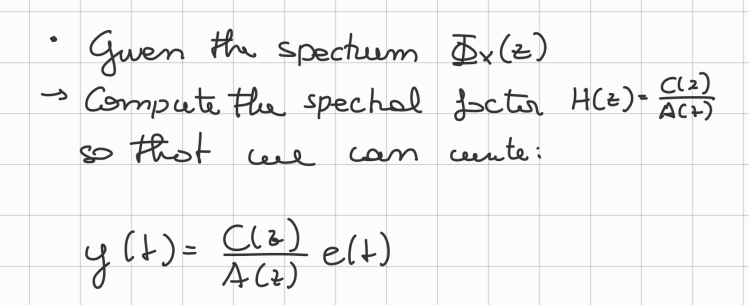 • Given the spectrum Φx(z)
→ Compute the spectral factor H(z) = C(z)/A(z)
so that we can write:
y(t) = C(z)/A(z) e(t)